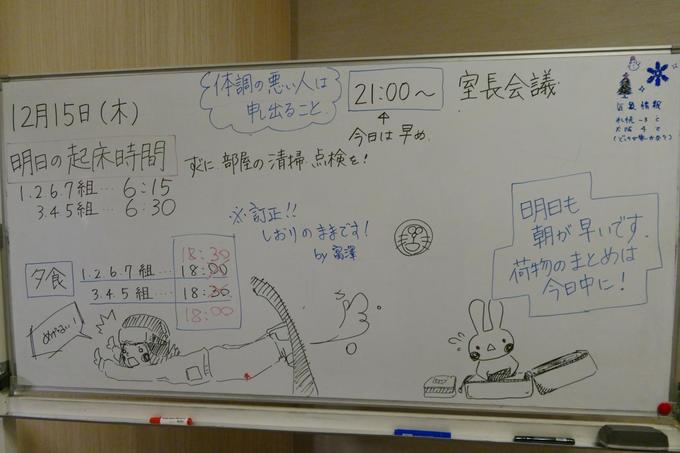 12月15日(木)
体調の悪い人は
申し出ること。
21:00～
室長会議
今日は早め。
気象情報
札幌 -3℃
大阪 4℃
明日の起床時間
すぐに部屋の清掃、点検を!
1.2.6.7組… 6:15
3.4.5組… 6:30
※訂正!!
しおりのままです!
by 富澤
夕食
18:30
1.2.6.7組…. 18:00
3.4.5組…. 18:30
18:00
明日も
朝が早いです。
荷物のまとめは
今日中に!